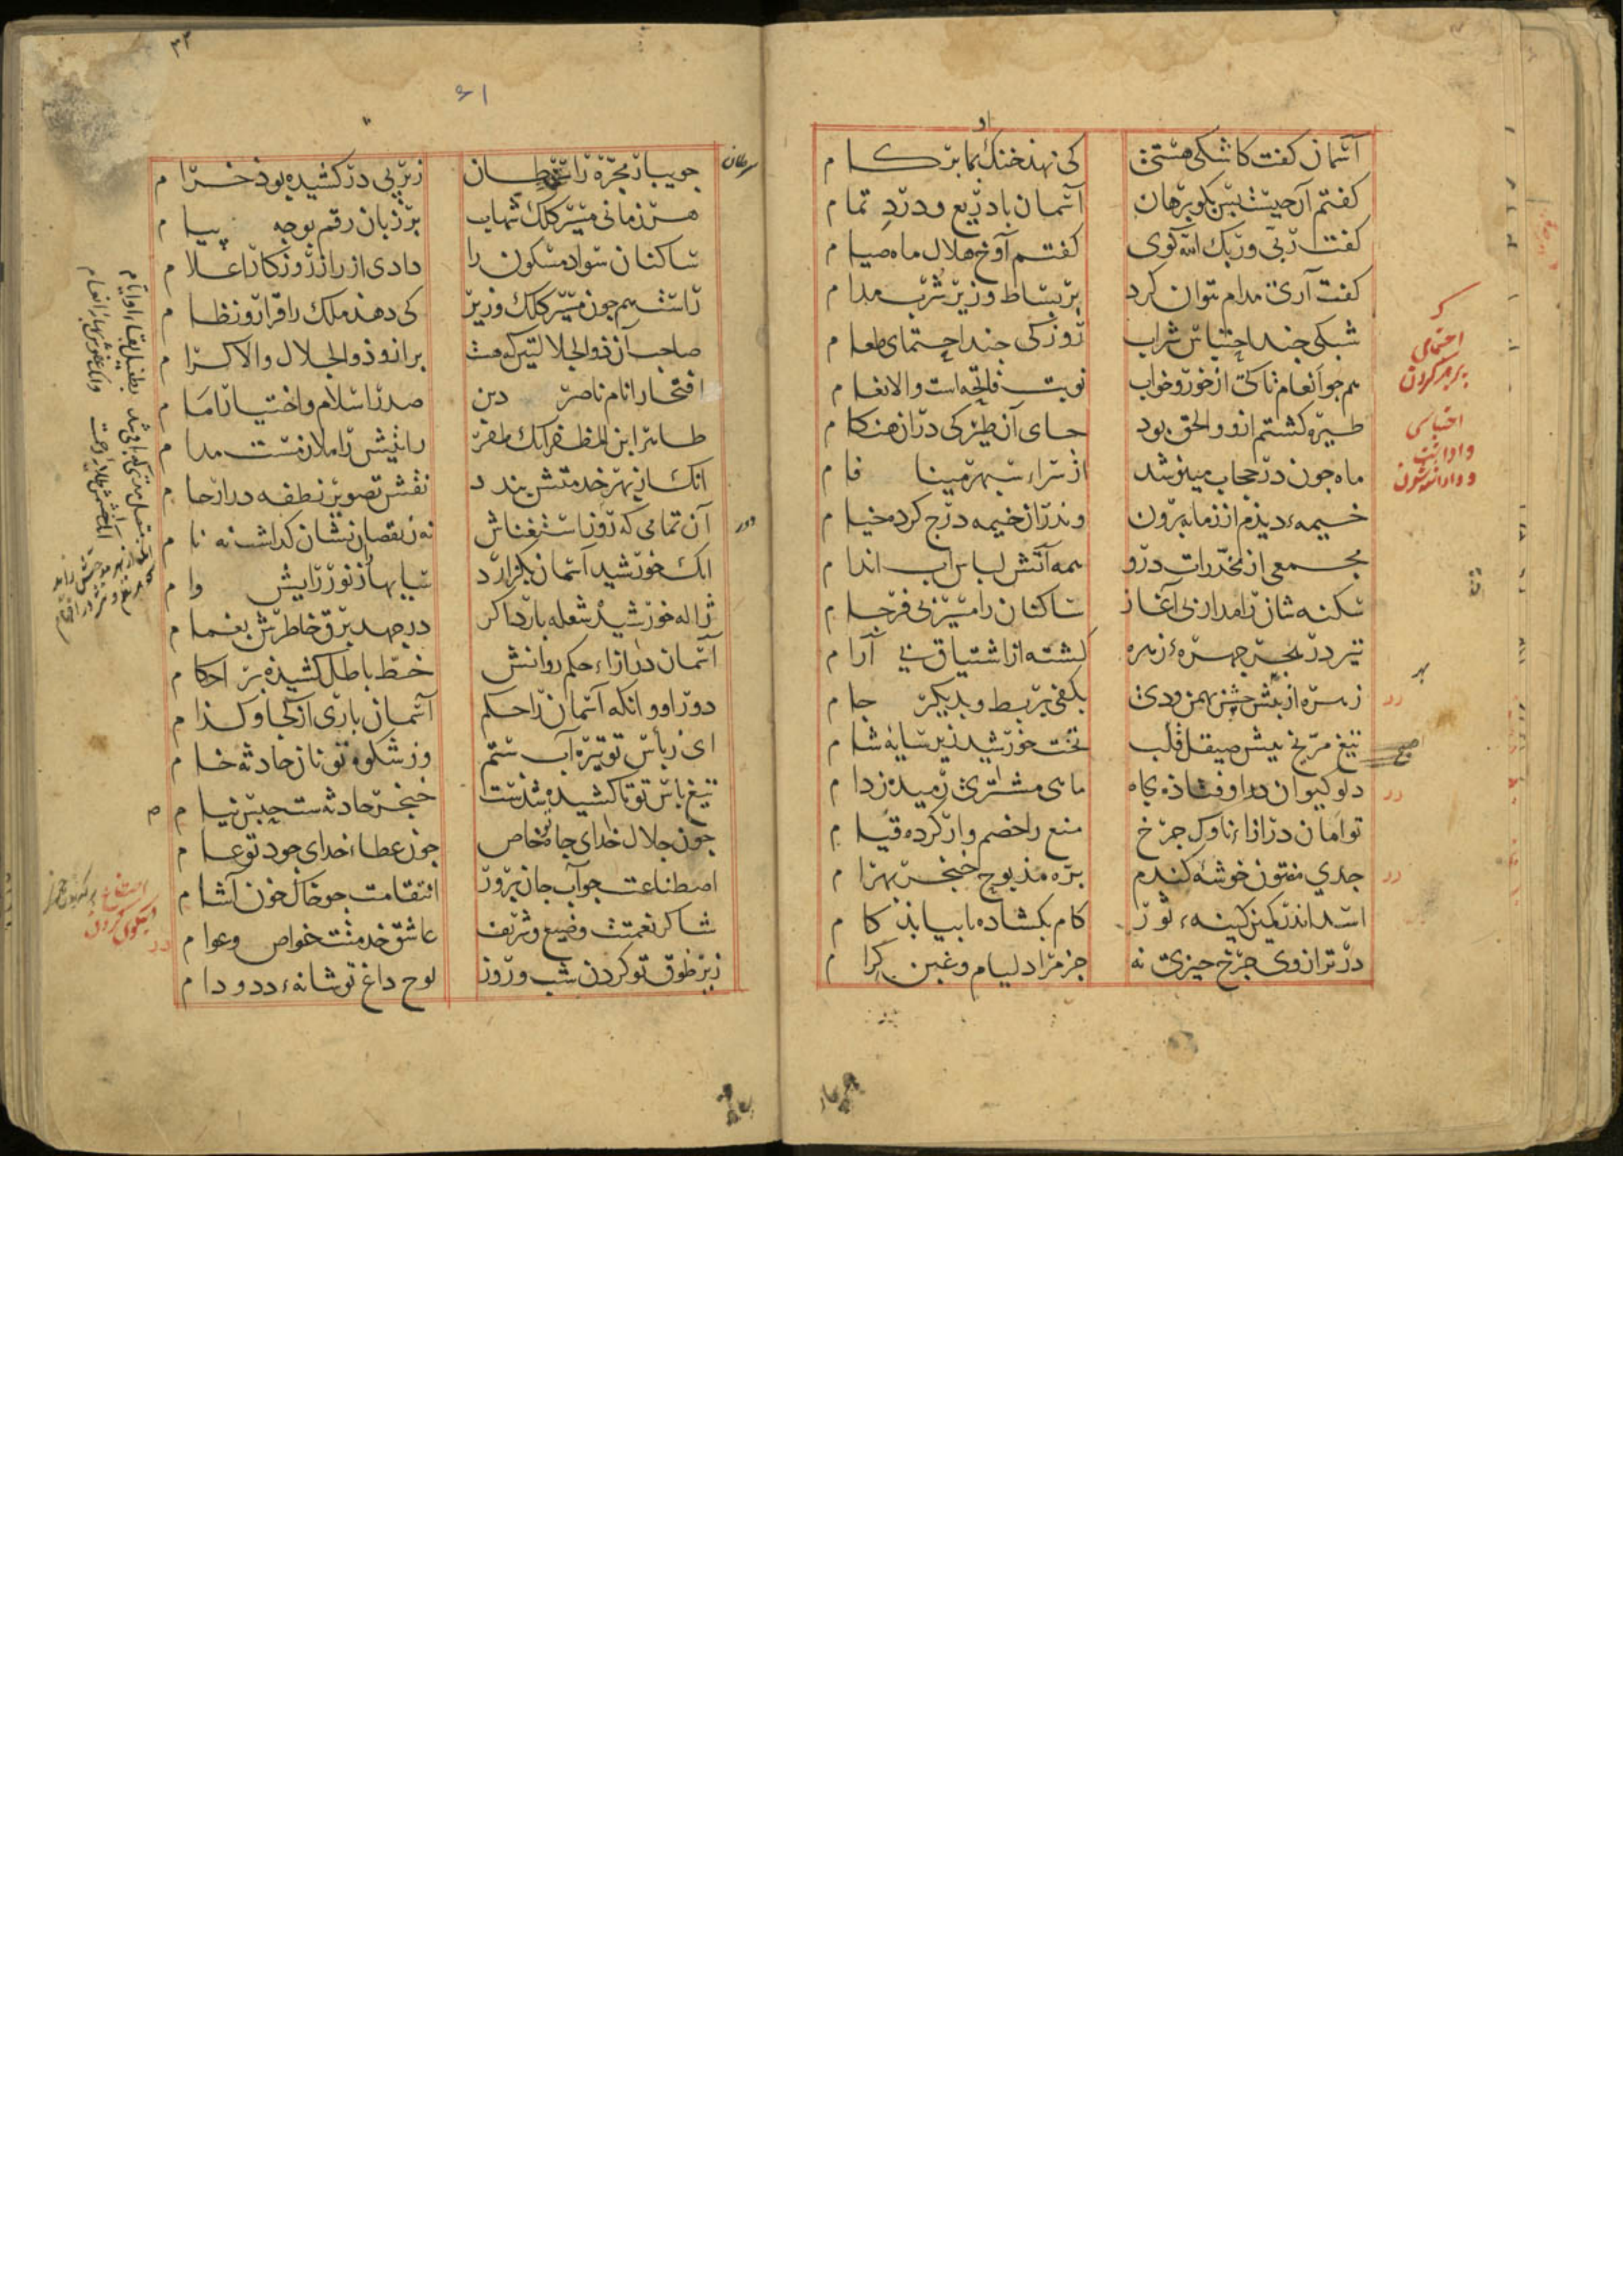 آسمان کفت کاشکی هستی کی نهد خنک بما بر کام
کفتم آن چیست بس بکو برهان آسمان با دریع و درد تمام
کفت ربی و ربک الله کوی کفتم آوخ هلال ماه صیام
کفت آری مدام نتوان کرد بر بساط وزیر شرب مدام
شبکی چند احتباس شراب روزکی چند احتمای طعام
هم جو انعام تا کی از خور و خواب نوبت فاتحه است والانعام
طیره کشتم ازو و الحق بود جای آن طیرکی در آن هنکام
ماه جون در حجاب می‌شد از سراء سپهر مینا فام
خیمهء دیدم از زمانه برون وندران خیمه درج کرده خیام
مجمعی از مخدرات درو همه آتش لباس آب اندام
سکنه شان را مدار نی آغاز ساکنان را مسیر بی فرجام
تیر در بحر چهرهء زهره کشته از اشتیاق بی آرام
زهره از پیش جشن بهمن و دی بکفی بربط و بدیکر جام
تیغ مریخ پیش صیقل قلب تخت خورشید زیر سایهٔ شام
دلو کیوان در اوفتاذه بچاه ماهی مشتری رمیده ز دام
توامان در ازاء ناوک جرخ منع را خصم وار کرده قیام
جدی مفتون خوشهٔ کندم بره مذبوح خنجر بهرام
اسد اندر کمین کینهء ثور کام بکشاده تا بیابذ کام
در ترازوی جرخ چیزی نه جز مراد لیام و غبن کرام
احتمای
پرهیز کردن
احتباس
صح
۶۱
۳۳
جویبار مجره را سرطان زیر پی در کشیده بوذ خرام
هر زمانی مسیر کلک شهاب بر زبان رقم بوجه پیام
ساکنان سواد مسکون را دادی از راز روزکار اعلام
راست هم جون مسیر کلک وزیر کی دهذ ملک را قرار و نظام
صاحب آن ذوالجلال کی هست برانو ذوالجلال والاکرام
افتخار انام ناصر دین صدر اسلام و اختیار امام
طاهر ابن المظفر آنک ظفر رایتش را ملازمست مدام
انک از بهر خدمتش بندد نقش تصویر نطفه در ارحام
آن تمامی که روز استغناش نه ز نقصان نشان کذاشت نه نام
انک خورشید آسمان بکزارد سایها از نور رایش وام
ژاله خورشید شعله بارد اکر در جهد برق خاطرش بغمام
آسمان در ازاء حکم روانش خط باطل کشیده بر احکام
دور او و انکه آسمان را حکم آسمان باری از کجا و کذام
ای ز باس تو تیره آب ستم وز شکوه تو نان حادثه خام
تیغ باس تو تا کشیده شدست خنجر حادثه ست حبس نیام
جون جلال خدای جاه تو خاص جون عطاء خدای جود تو عام
اصطناعت جو آب جان پرور انتقامت جو خاک خون آشام
شاکر نعمتت وضیع و شریف عاشق خدمتت خواص و عوام
زیر طوق تو کردن شب و روز لوح داغ تو شانهء دد و دام
سرطان
دور
نیکوی کردن